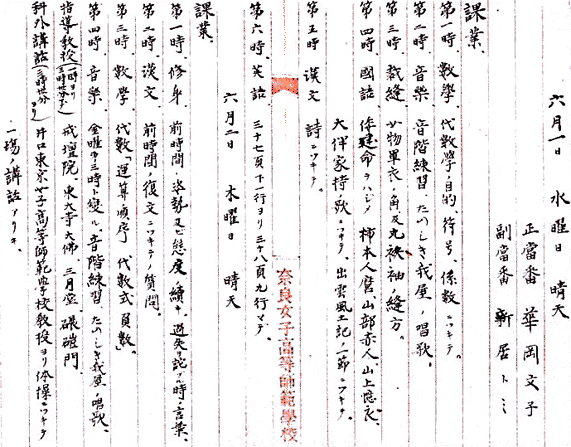 六月一日 水曜日 晴天
正當番 華岡文子
副當番 新居トミ
課業.
第一時. 數學. 代數學ノ目的 符号、係數ニツキテ。
第二時. 音樂. 音階練習、たのしき我屋ノ唱歌。
第三時. 裁縫. 小物單衣ノ角及丸袂袖ノ縫方。
第四時. 國語. 倭建命ヲハジメ 柿本人麿 山部赤人 山上憶良、
大伴家持ノ歌ニツキテ、出雲風土記ノ一節ニツキテ。
第五時 漢文 詩ニツキテ。
第六時. 英語. 三十七頁下一行ヨリ三十八頁九行マデ。
六月二日 木曜日 晴天
課業.
第一時. 修身. 前時間ノ姿勢及ビ態度ノ續キ、過失ヲ詫ブル時ノ言葉、
第二時. 漢文. 前時間ノ復文ニツキテノ質問。
第三時. 數學. 代數「運算ノ順序 代數式ノ員數」。
第四時. 音樂. 金曜ヨリ三時ト變ル、音階練習 たのしき我屋ノ唱歌、
指導教授 (一時ヨリ三時廿分マデ) 戒壇院、東大寺大佛、三月堂 碾磑門
科外講話 (三時廿分ヨリ) 井口東京女子高等師範學校教授ヨリ体操ニツキテ
一場ノ講話アリキ.
奈良女子高等師範學校